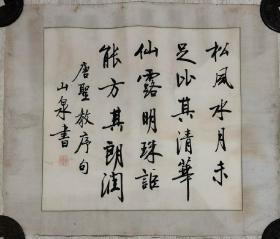 松風水月未
足比其清華
仙露明珠詎
能方其朗潤
唐聖教序句
山泉書